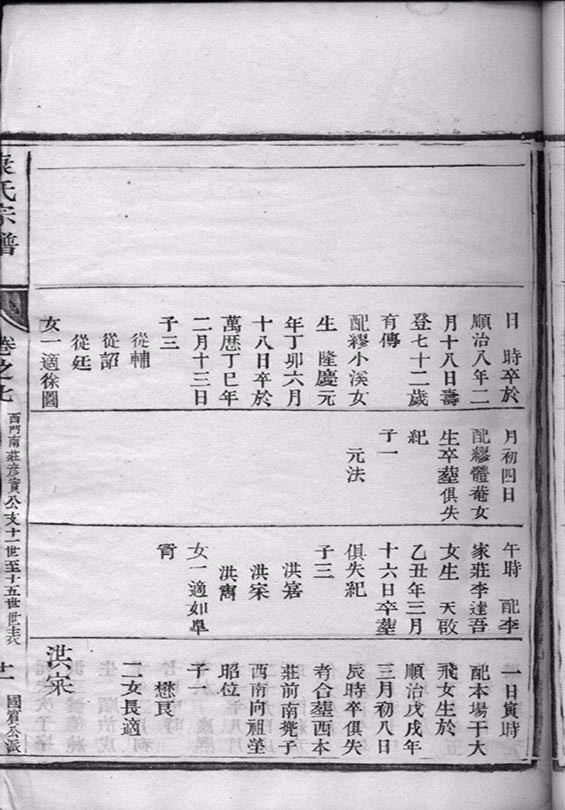 日　時卒於
順治八年二
月十八日壽
登七十二歲
有傳
配繆小溪女
生　隆慶元
年丁卯六月
十八日卒於
萬厯丁巳年
二月十三日
子三
從輔
從詔
從廷
女一適徐圖
月初四日
配繆體菴女
生卒塟俱失
紀
子一
元法
午時　配李
家莊李達吾
女生　天啟
乙丑年三月
十六日卒塟
俱失紀
子三
洪嘉
洪寀
洪嶲
女一適如臯
胥
一日寅時
配本場于大
飛女生於
順治戊戌年
三月初八日
辰時卒俱失
者合塟西本
莊前南凳子
西南向祖塋
昭位
子一
懋良
二女長適
洪寀
氏宗譜
卷之七
西門南莊彥實公支十一世至十五世世表
廿一
國賓公派